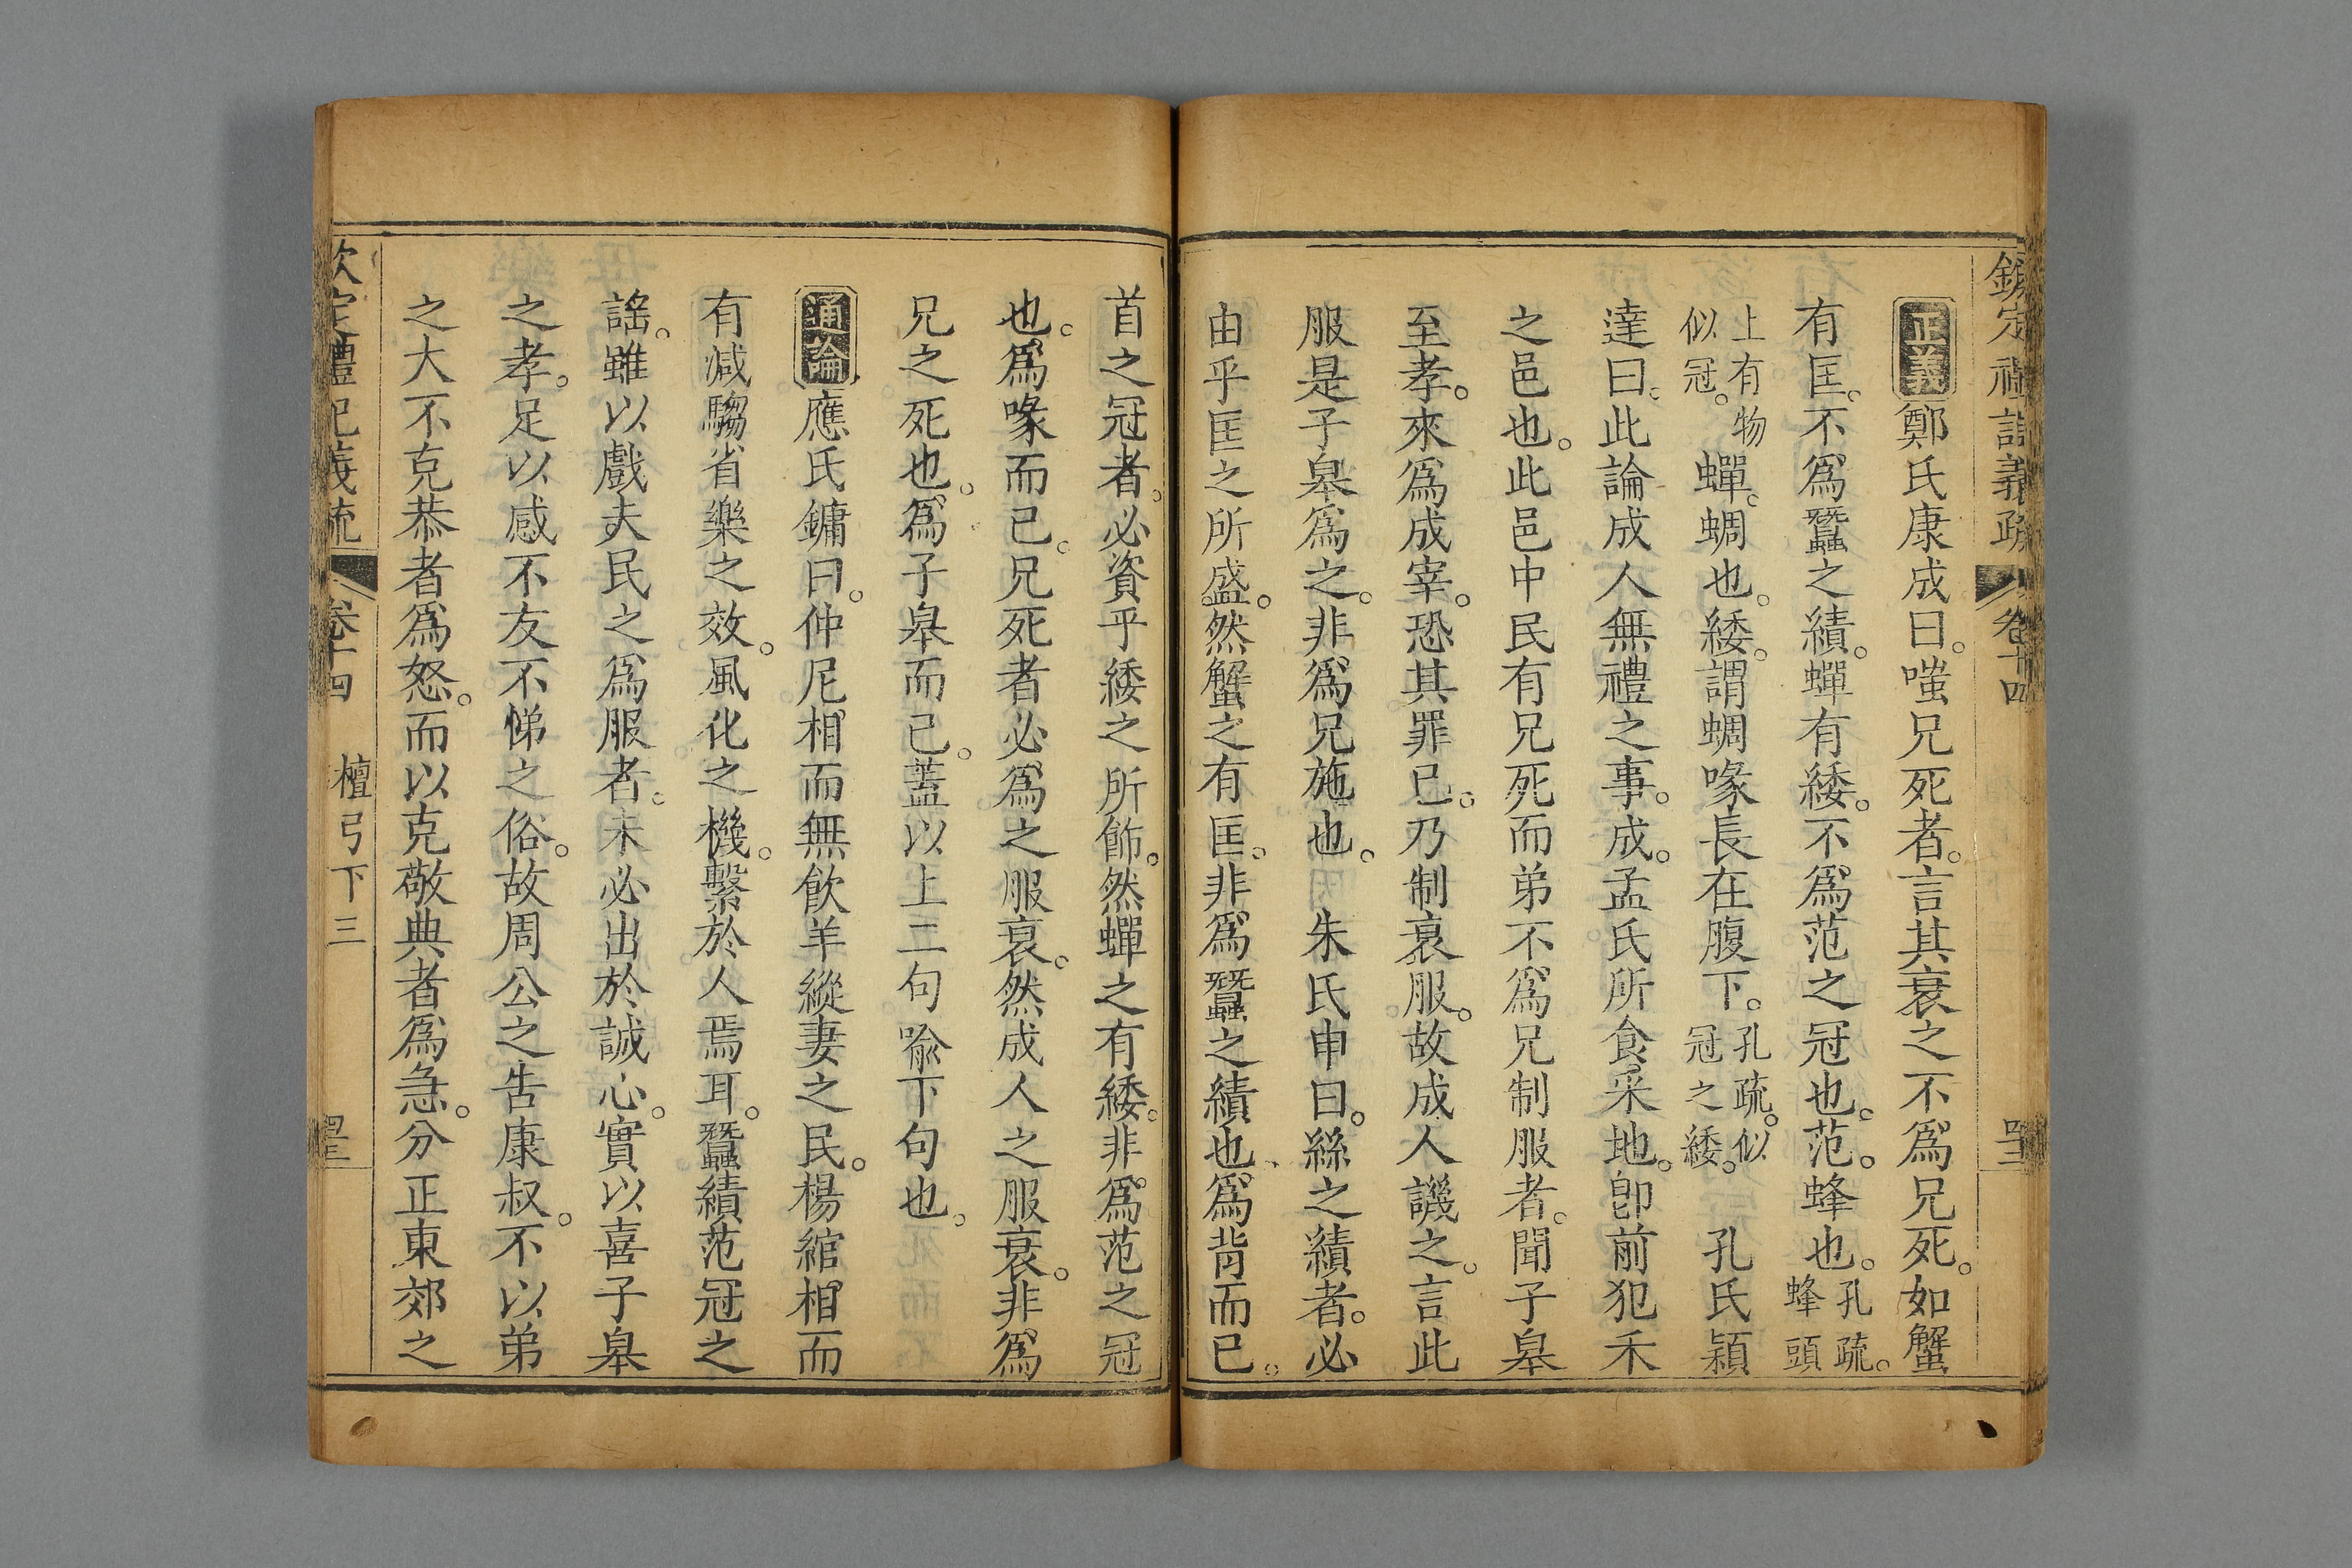 欽定禮記義疏 卷十四
正義鄭氏康成曰。嗤兄死者。言其衰之不爲兄死。如蟹
有匡。不爲蠶之績。蟬有緌。不爲范之冠也。范。蜂也。孔疏。蜂頭
上有物似冠。蟬。蜩也。緌。謂蜩喙長在腹下。孔疏。似冠之緌。 孔氏穎
達曰。此論成人無禮之事。成。孟氏所食采地。卽前犯禾
之邑也。此邑中民有兄死而弟不爲兄制服者。聞子皋
至孝。來爲成宰。恐其罪已。乃制衰服。故成人譏之。言此
服是子皋爲之。非爲兄施也。 朱氏申曰。絲之績者。必
由乎匡之所盛。然蟹之有匡。非爲蠶之績也、爲背而已。
首之冠者。必資乎緌之所飾。然蟬之有緌。非爲范之冠
也。爲喙而已。兄死者必爲之服衰。然成人之服衰。非爲
兄之死也。爲子皋而已。蓋以上二句喩下句也。
通論應氏鏞曰。仲尼相而無飮羊縱妻之民。楊綰相而
有減騶省樂之效。風化之機。繫於人焉耳。蠶績范冠之
謠。雖以戲夫民之爲服者。未必出於誠心。實以喜子皋
之孝。足以感不友不悌之俗。故周公之告康叔。不以弟
之大不克恭者爲怒。而以克敬典者爲急。分正東郊之
欽定禮記義疏 卷十四 檀弓下三